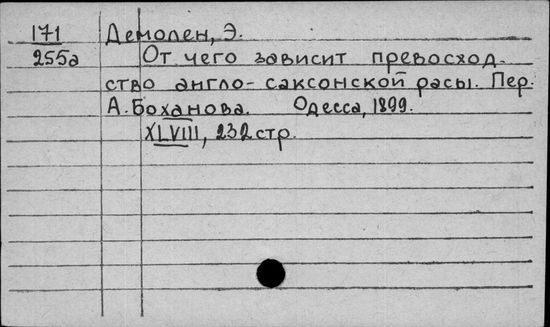 171 Демолен, Э.
255а От чего зависит превосход-
ство англо-саксонской расы. Пер.
А. Боханова. Одесса, 1899.
XLVIII, 232 стр.